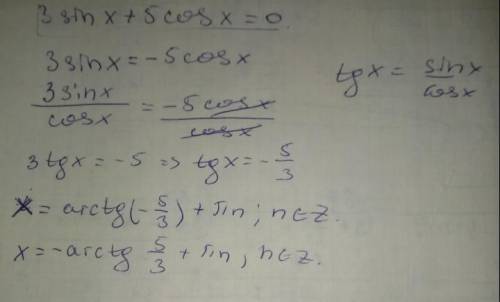 3 sin x + 5 cos x = 0
3 sin x = -5 cos x
tg x = sin x / cos x
3 sin x / cos x = -5 cos x / cos x
3 tg x = -5 => tg x = -5/3
x = arctg(-5/3) + πn; n∈Z.
x = -arctg 5/3 + πn, n∈Z.